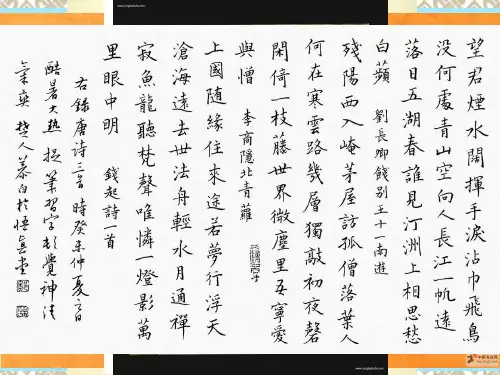 www.yingbishufa.com
望君煙水闊揮手淚沾巾飛鳥
沒何處青山空向人長江一帆遠
落日五湖春誰見汀洲上相思愁
白蘋 劉長卿餞別王十一南遊
殘陽西入崦茅屋訪孤僧落葉人
何在寒雲路幾層獨敲初夜磬
閑倚一枝藤世界微塵里吾寧愛
與憎 李商隱北青蘿
上國隨緣住來途若夢行浮天
滄海遠去世法舟輕水月通禪
寂魚龍聽梵聲唯憐一燈影萬
里眼中明 錢起詩一首
右錄唐詩三首時癸未仲夏日
酷暑大熱捉筆習字覺神清
氣爽 人慕白於悟真堂